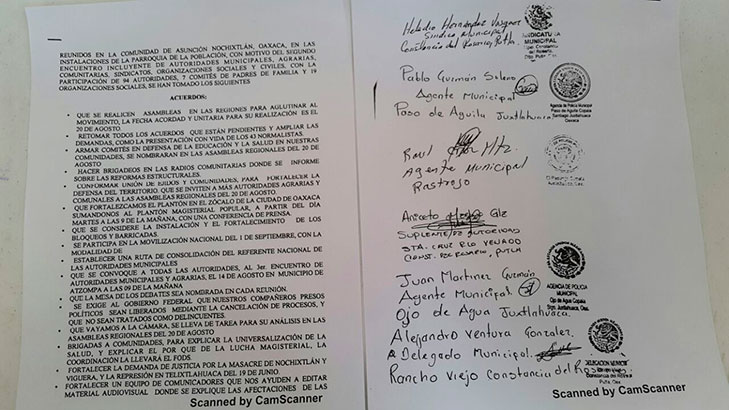 REUNIDOS EN LA COMUNIDAD DE ASUNCIÓN NOCHIXTLÁN, OAXACA, EN LAS
INSTALACIONES DE LA PARROQUIA DE LA POBLACIÓN, CON MOTIVO DEL SEGUNDO
ENCUENTRO INCLUYENTE DE AUTORIDADES MUNICIPALES, AGRARIAS,
COMUNITARIAS, SINDICATOS, ORGANIZACIONES SOCIALES Y CIVILES, CON LA
PARTICIPACIÓN DE 94 AUTORIDADES, 7 COMITÉS DE PADRES DE FAMILIA Y 19
ORGANIZACIONES SOCIALES, SE HAN TOMADO LOS SIGUIENTES
ACUERDOS:
• QUE SE REALICEN ASAMBLEAS EN LAS REGIONES PARA AGLUTINAR AL
MOVIMIENTO, LA FECHA ACORDAD Y UNITARIA PARA SU REALIZACIÓN ES EL
20 DE AGOSTO.
• RETOMAR TODOS LOS ACUERDOS QUE ESTÁN PENDIENTES Y AMPLIAR LAS
DEMANDAS, COMO LA PRESENTACIÓN CON VIDA DE LOS 43 NORMALISTAS.
• ARMAR COMITÉS EN DEFENSA DE LA EDUCACIÓN Y LA SALUD EN NUESTRAS
COMUNIDADES, SE NOMBRARAN EN LAS ASAMBLEAS REGIONALES DEL 20 DE
AGOSTO
• HACER BRIGADEOS EN LAS RADIOS COMUNITARIAS DONDE SE INFORME
SOBRE LAS REFORMAS ESTRUCTURALES.
• CONFORMAR UNIÓN DE EJIDOS Y COMUNIDADES, PARA FORTALECER LA
DEFENSA DEL TERRITORIO, QUE SE INVITEN A MÁS AUTORIDADES AGRARIAS Y
COMUNALES A LAS ASAMBLEAS REGIONALES DEL 20 DE AGOSTO.
• QUE FORTALEZCAMOS EL PLANTÓN EN EL ZÓCALO DE LA CIUDAD DE OAXACA
SUMANDONOS AL PLANTÓN MAGISTERIAL POPULAR, A PARTIR DEL DÍA
MARTES A LAS 9 DE LA MAÑANA, CON UNA CONFERENCIA DE PRENSA.
• QUE SE CONSIDERE LA INSTALACIÓN Y EL FORTALECIMIENTO DE LOS
BLOQUEOS Y BARRICADAS.
• SE PARTICIPA EN LA MOVILIZACIÓN NACIONAL DEL 1 DE SEPTIEMBRE, CON LA
MODALIDAD DE
• ESTABLECER UNA RUTA DE CONSOLIDACIÓN DEL REFERENTE NACIONAL DE
LAS AUTORIDADES MUNICIPALES
• QUE SE CONVOQUE A TODAS LAS AUTORIDADES, AL 3er. ENCUENTRO DE
AUTORIDADES MUNICIPALES Y AGRARIES, EL 14 DE AGOSTO EN MUNICIPIO DE
ATZOMPA A LAS 09 DE LA MAÑANA
• QUE LA MESA DE LOS DEBATES SEA NOMBRADA EN CADA REUNIÓN.
• SE EXIGE AL GOBIERNO FEDERAL QUE NUESTROS COMPAÑEROS PRESOS
POLÍTICOS SEAN LIBERADOS MEDIANTE LA CANCELACIÓN DE PROCESOS, Y
QUE NO SEAN TRATADOS COMO DELINCUENTES.
• QUE VAYAMOS A LA CÁMARA, SE LLEVA DE TAREA PARA SU ANÁLISIS EN LAS
ASAMBLEAS REGIONALES DEL 20 DE AGOSTO
• BRIGADAS A COMUNIDADES, PARA EXPLICAR LA UNIVERSALIZACIÓN DE LA
SALUD, Y EXPLICAR EL POR QUE DE LA LUCHA MAGISTERIAL, LA
COORDINACIÓN LA LLEVARÁ EL FODS.
• FORTALECER LA DEMANDA DE JUSTICIA POR LA MASACRE DE NOCHIXTLÁN Y
VIGUERA, Y LA REPRESIÓN EN TELIXTLAHUACA DEL 19 DE JUNIO.
• FORTALECER UN EQUIPO DE COMUNICADORES QUE NOS AYUDEN A EDITAR
MATERIAL AUDIOVISUAL DONDE SE EXPLIQUE LAS AFECTACIONES DE LAS
Scanned by CamScanner
Heladio Hernández Vasquez
Sindico Municipal
Constancia del Rosario, Putla
SINDICATURA
MUNICIPAL
Pablo Guzmán Soleno
Agente Municipal
Paso de Aguila Juxtlahuaca
Agencia de Policia Municipal
Paso de Aguila Copala
Santiago Juxtlahuaca
Oaxaca
Raul Mtz.
Agente Municipal
Rastrojo
Aniceto Glz
SUPLENTE DE AUTORIDAD
STA. CRUZ RIO VENADO
CONST. DEL ROSARIO, PUTLA
Juan Martinez Guzmán
Agente Municipal.
Ojo de Agua Juxtlahuaca.
AGENCIA DE POLICIA
MUNICIPAL
Ojo de Agua Copala
Alejandro Ventura Gonzalez.
Delegado Municipal.
Rancho Viejo Constancia del Rosario
Scanned by CamScanner